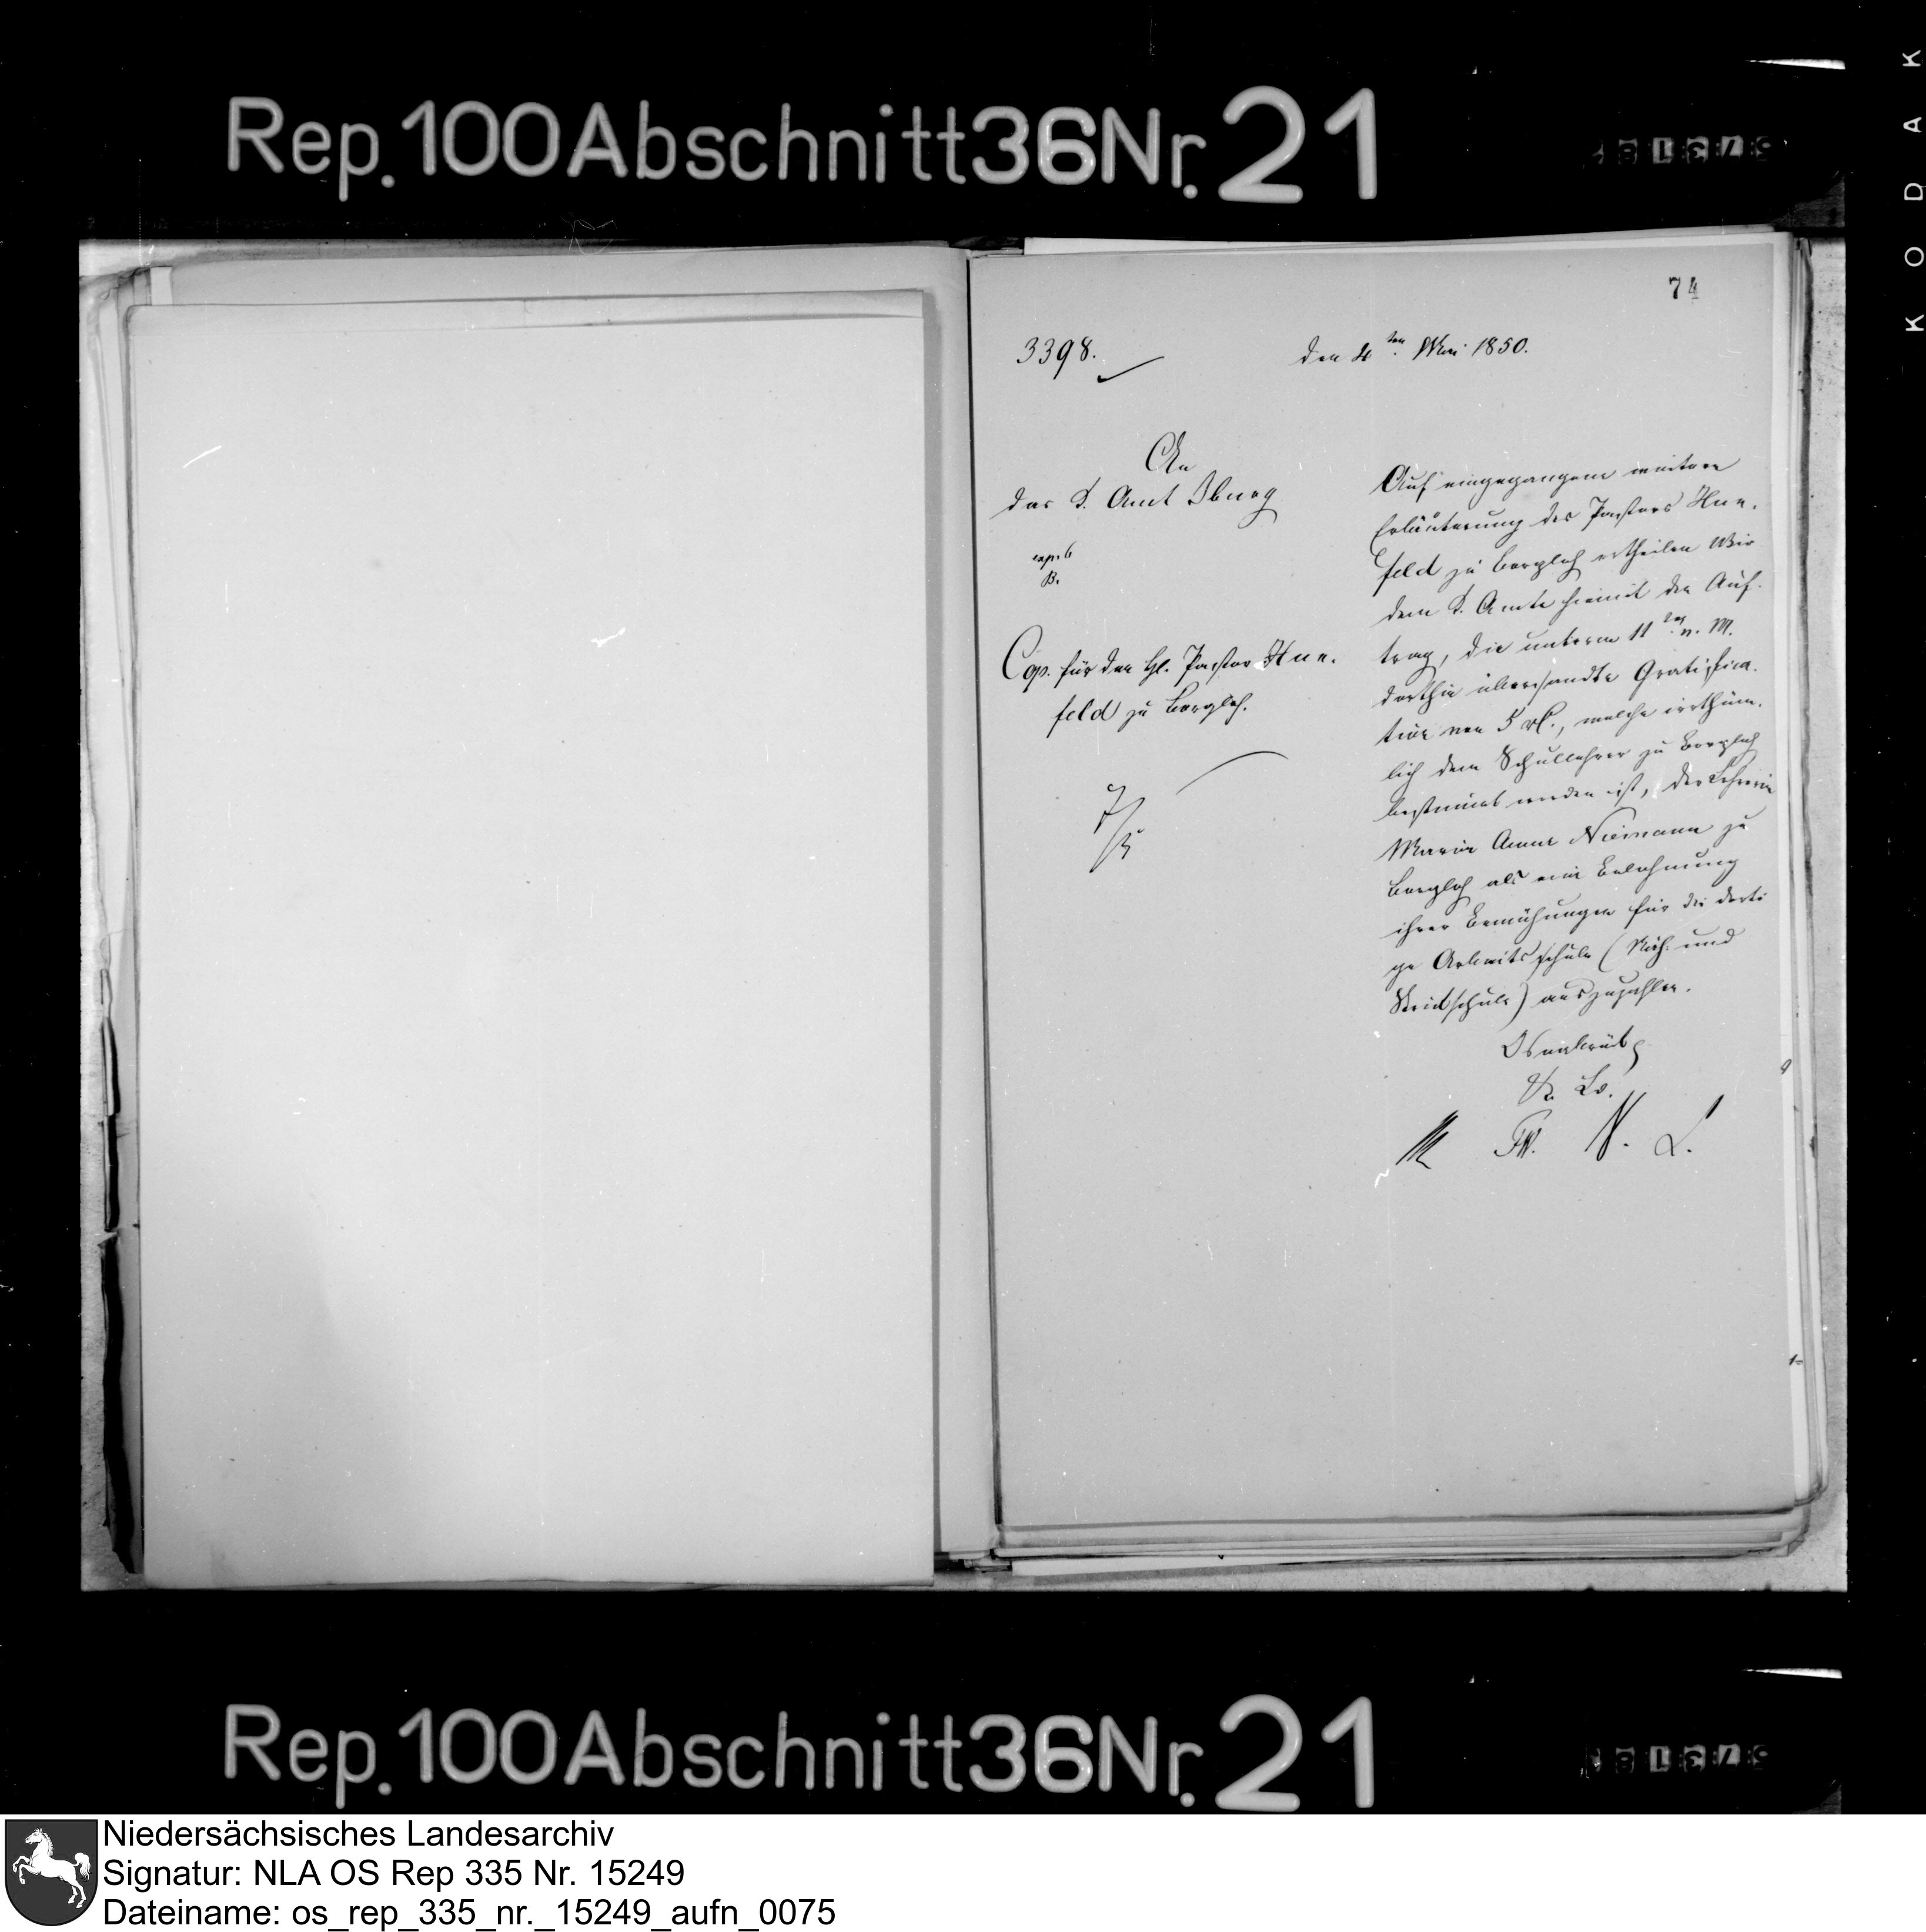 Rep. 100 Abschnitt 36 Nr. 21
KODAK
74
3398.
den 4ten Mai 1850.
An
das K. Amt Iburg
exp. 6
B.
Cop. für den H. Pastor Hune-
feld zu Borgloh.
7/5
Auf eingegangene weitere
Erläuterung des Pastors Hune-
feld zu Borgloh ertheilen Wir
dem K. Amte hiemit den Auf-
trag, die unterm 11ten v. M.
dorthin übersandte Gratifica-
tion von 5 rℓ., welche irrthüm-
lich dem Schullehrer zu Borgloh
bestimmt worden ist, der Lehrerin
Maria Anna Niemann zu
Borgloh als eine Belohnung
ihrer Bemühungen für die dorti-
ge Arbeitsschule (Näh- und
Strickschule) auszuzahlen.
Osnabrück
K. Ld.
M FW. N. L.
Rep. 100 Abschnitt 36 Nr. 21
Niedersächsisches Landesarchiv
Signatur: NLA OS Rep 335 Nr. 15249
Dateiname: os_rep_335_nr._15249_aufn_0075